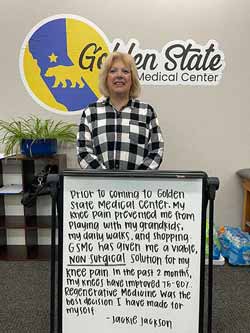 Golden State
Medical Center
PRIOR TO COMING TO GOLDEN
STATE MEDICAL CENTER, MY
KNEE PAIN PREVENTED ME FROM
PLAYING WITH MY GRANDKIDS,
MY DAILY WALKS, AND SHOPPING.
GSMC HAS GIVEN ME A VIABLE,
NON SURGICAL SOLUTION FOR MY
KNEE PAIN. IN THE PAST 2 MONTHS,
MY KNEES HAVE IMPROVED 76-80%.
REGENERATIVE MEDICINE WAS THE
BEST DECISION I HAVE MADE FOR
MYSELF
- JACKIE JACKSON